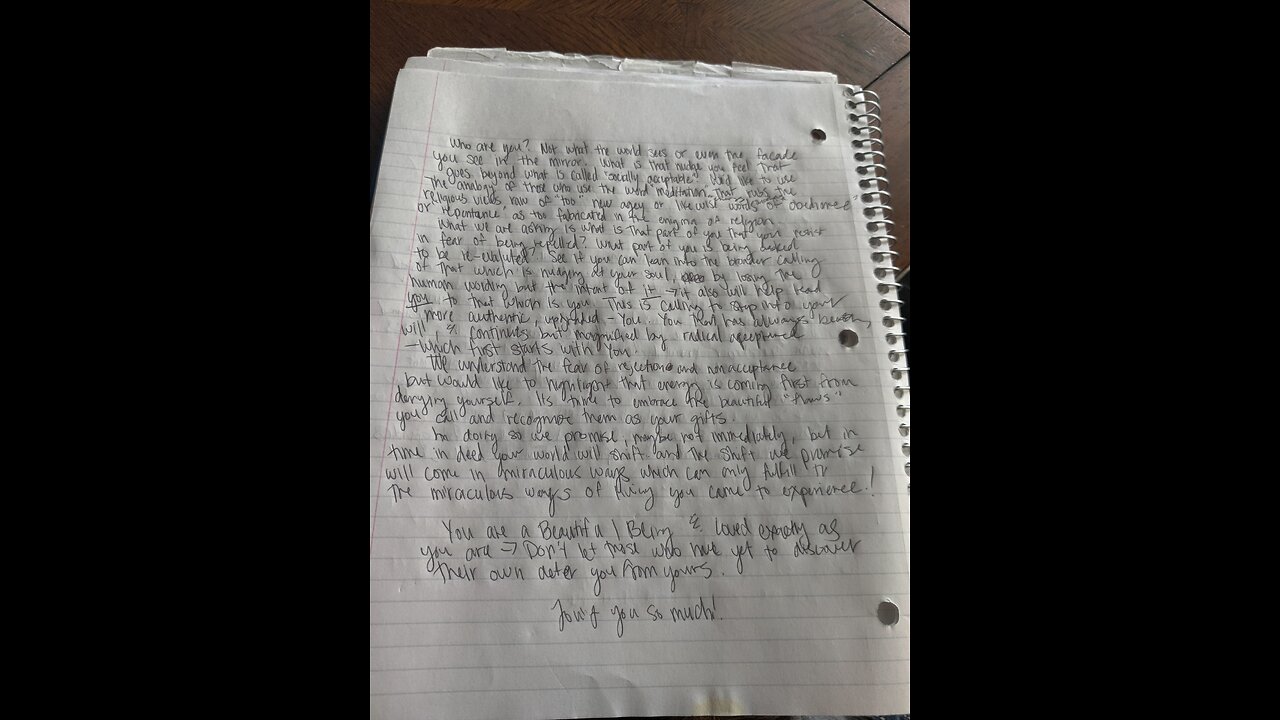 Who are you? Not what the world sees or even the facade
you see in the mirror. What is that nudge you feel that
goes beyond what is called "socally acceptable". We'd like to use
the analogy of those who use the word meditation that rubs the
religious views raw of "too" new agey or likewise words of "obedience"
or repentance as too fabricated in the enigma of religion.
What we are asking is what is that part of you that your resist
in fear of being repelled? What part of you is being asked
to be re-valuted? See if you can lean into the broader calling
of that which is nudging at your soul, by losing the
human wording but the intent of it → it also will help lead
you to that which is you. This is calling to step into your
more authentic, upgraded - You. You that has always been,
will & continues but magnified by radical acceptance
- which first starts with You.
We understand the fear of rejection and non acceptance
but would like to highlight that energy is coming first from
denying yourself. Its time to embrace the beautiful "flaws"
you call and recognize them as your gifts.
In doing so we promise, maybe not immediately, but in
time in deed your world will shift and the shift we promise
will come in miraculous ways which can only fulfill
the miraculous ways of living you came to experience!
You are a Beautiful Being & loved exactly as
you are → Don't let those who have yet to discover
their own deter you from yours.
you so much!